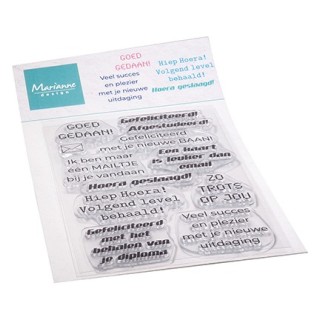 Marianne
DESIGN
GOED
GEDAAN!
Veel succes
en plezier
met je nieuwe
uitdaging
Hiep Hoera!
Volgend level
behaald!
Hoera geslaagd!
GOED
GEDAAN!
Gefeliciteerd!
Afgestudeerd!
Gefeliciteerd
met je nieuwe BAAN!
Ik ben maar
een MAILTJE
bij je vandaan
Een kaart
is leuker dan
email
Hoera geslaagd!
Hiep Hoera!
Volgend level
behaald!
ZO
TROTS
OP JOU
Gefeliciteerd
met het
behalen van
je diploma
Veel succes
en plezier
met je nieuwe
uitdaging